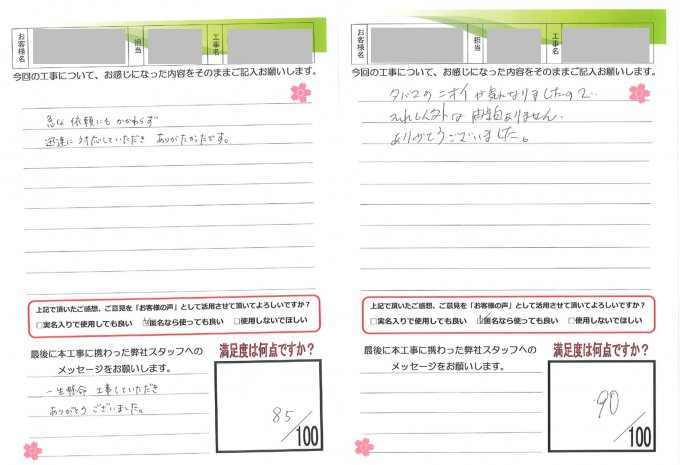 お客様名
担当
工事名
今回の工事について、お感じになった内容をそのままご記入お願いします。
急な依頼にもかかわらず
迅速に対応していただき ありがたかったです。
上記で頂いたご感想、ご意見を「お客様の声」として活用させて頂いてよろしいですか?
□実名入りで使用しても良い ☑匿名なら使っても良い □使用しないでほしい
最後に本工事に携わった弊社スタッフへの
メッセージをお願いします。
一生懸命 工事していただき
ありがとうございました。
満足度は何点ですか?
85/100
お客様名
担当
工事名
今回の工事について、お感じになった内容をそのままご記入お願いします。
タバコのニオイが気になりましたので
それ以外は問題ありません。
ありがとうございました。
上記で頂いたご感想、ご意見を「お客様の声」として活用させて頂いてよろしいですか?
□実名入りで使用しても良い ☑匿名なら使っても良い □使用しないでほしい
最後に本工事に携わった弊社スタッフへの
メッセージをお願いします。
満足度は何点ですか?
90/100